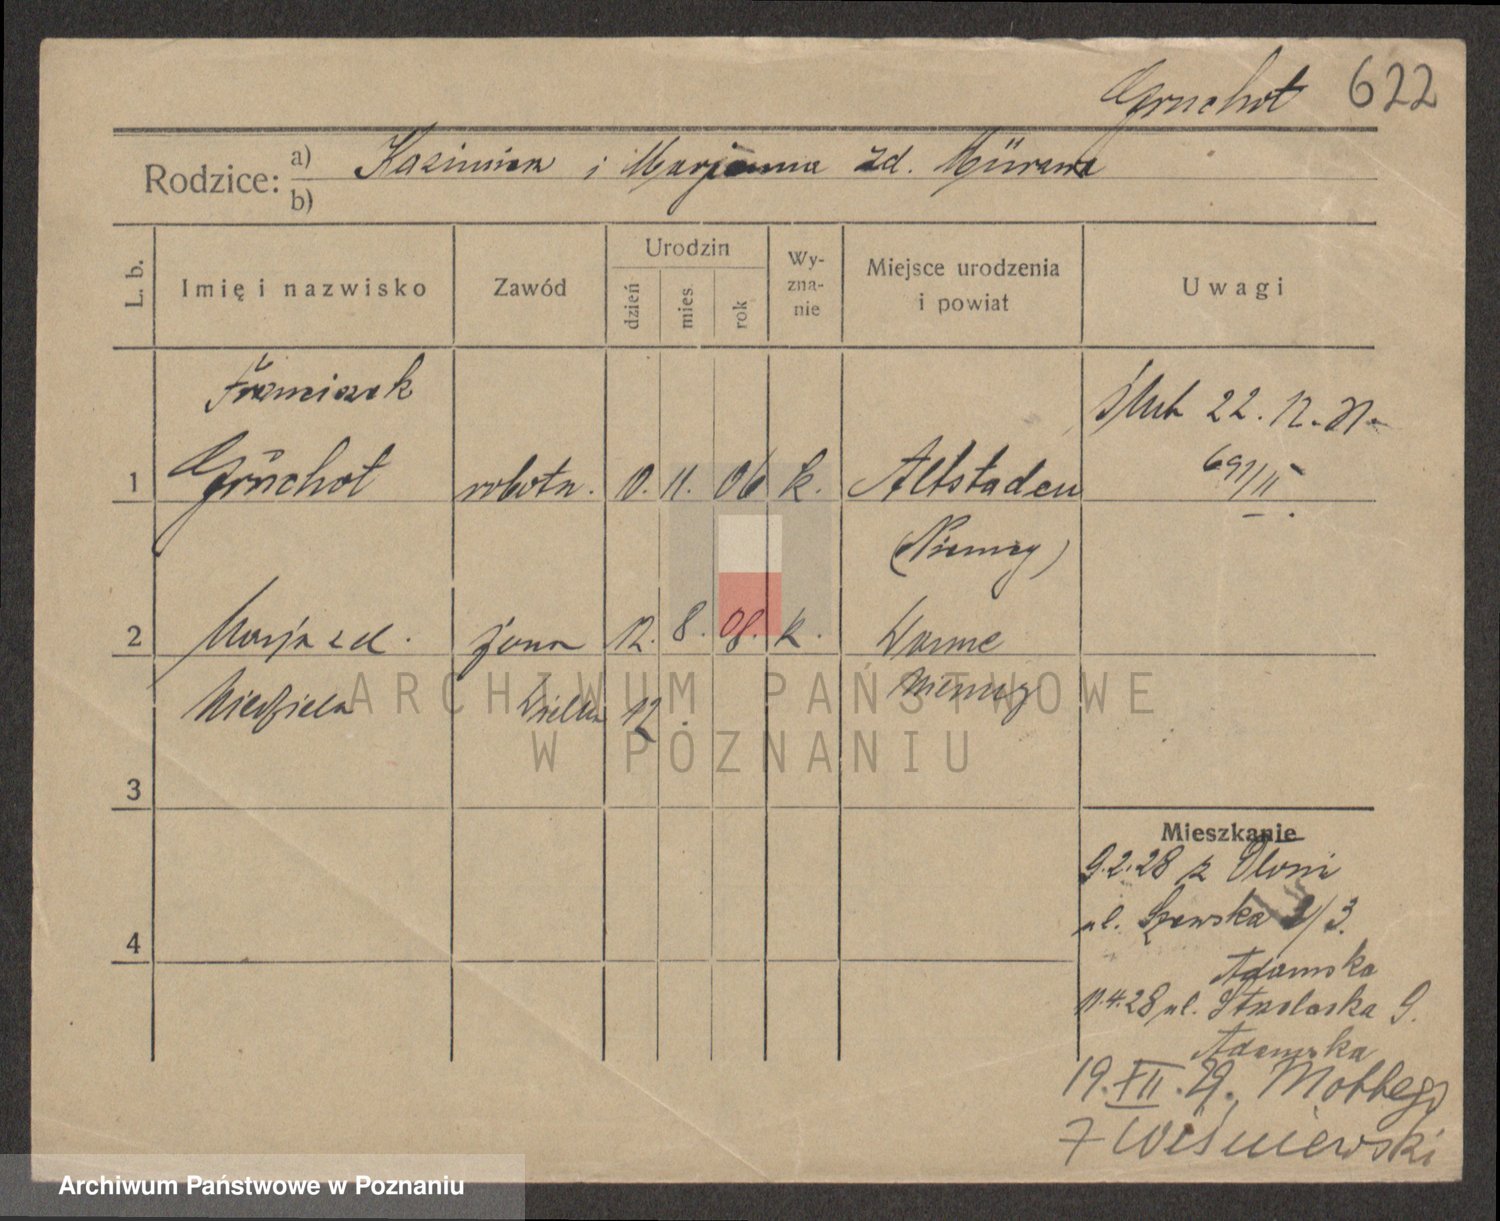 Gruchot 622
Rodzice: a) Kazimierz i Marjanna zd.
b)
L. b.
Imię i nazwisko
Zawód
Urodzin
dzień
mies
rok
Wy-
zna-
nie
Miejsce urodzenia
i powiat
Uwagi
Franciszek
Ślub 22. 12. 31.
1 Grŭchot robotn. 10. 11. 06 k. Altstaden
691/II
(Niemcy)
2 Marja zd. żona 12. 8. 08. k. Wanne
Niedziela Wielka 12. Niemcy
3
4
Mieszkanie
9.2.28 z
ul. Szewska 3/3.
Adamska
11.4.28 ul. Strzelecka 9.
Adamska
19.XII.29.
7 Wiśniewski
ARCHIWUM PAŃSTWOWE
W POZNANIU
Archiwum Państwowe w Poznaniu